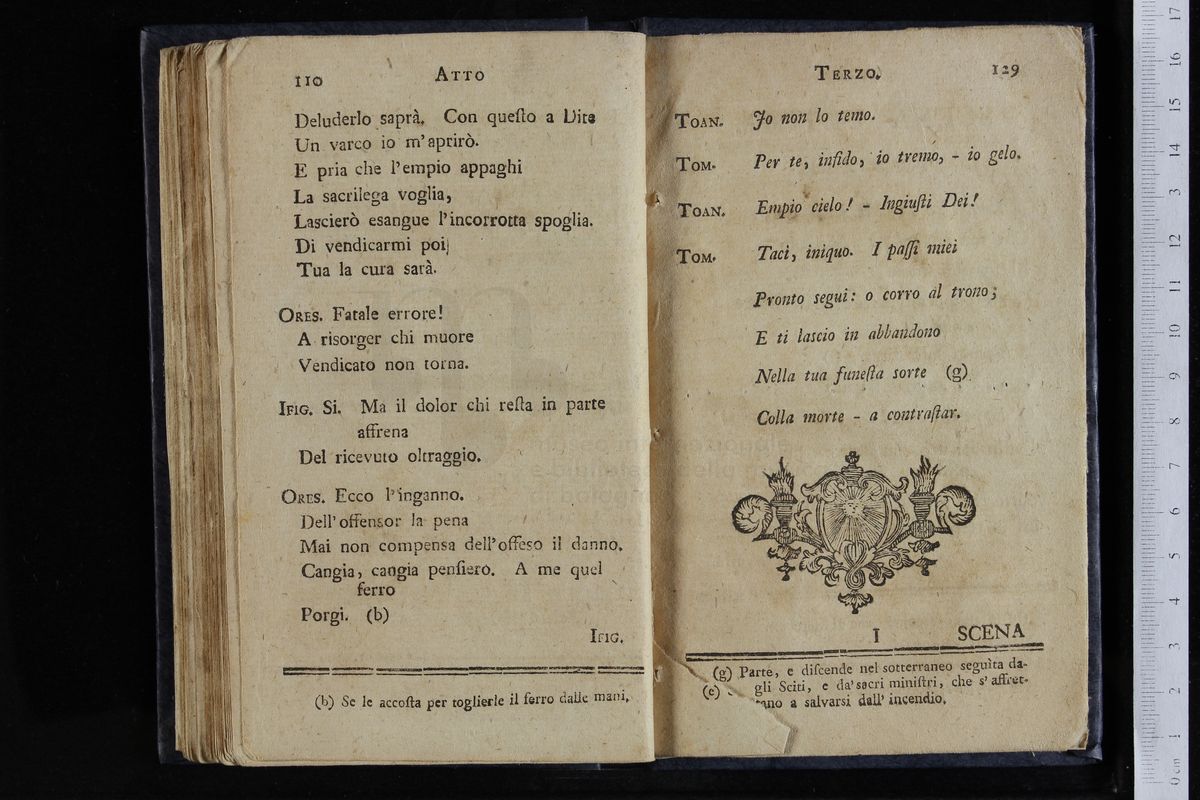 110 ATTO
Deluderlo saprà. Con queſto a Dite
Un varco io m'aprirò.
E pria che l'empio appaghi
La sacrilega voglia,
Lascierò esangue l'incorrotta spoglia.
Di vendicarmi poi
Tua la cura sarà.
ORES. Fatale errore!
A risorger chi muore
Vendicato non torna.
IFIG. Si. Ma il dolor chi reſta in parte
affrena
Del ricevuto oltraggio.
ORES. Ecco l'inganno.
Dell'offensor la pena
Mai non compensa dell'offeso il danno.
Cangia, cangia penſiero. A me quel
ferro
Porgi. (b)
IFIG.
(b) Se le accoſta per toglierle il ferro dalle mani.
TERZO. 129
TOAN. Jo non lo temo.
TOM. Per te, infido, io tremo, - io gelo.
TOAN. Empio cielo! - Ingiuſti Dei!
TOM. Taci, iniquo. I paſſi miei
Pronto segui: o corro al trono;
E ti lascio in abbandono
Nella tua funeſta sorte (g)
Colla morte - a contraſtar.
I SCENA
(g) Parte, e diſcende nel sotterraneo seguita da-
(c) gli Sciti, e da'sacri miniſtri, che s'affret-
tano a salvarsi dall'incendio.
0 cm 1 2 3 4 5 6 7 8 9 10 11 12 13 14 15 16 17